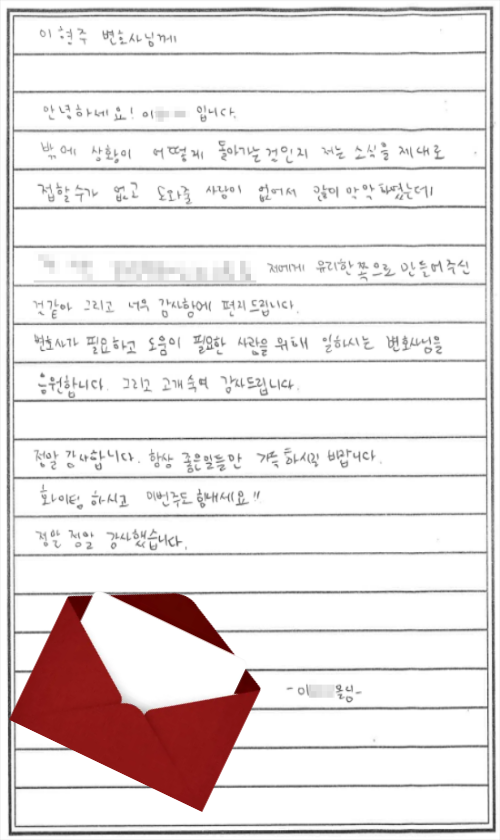 이형주 변호사님께
안녕하세요! 이 입니다.
밖에 상황이 어떻게 돌아가는건인지 저는 소식을 제대로
접할수가 없고 도와줄 사람이 없어서 많이 막막하였는데
저에게 유리한쪽으로 만들어주신
것같아 그리고 너무 감사함에 편지드립니다.
변호사가 필요하고 도움이 필요한 사람을 위해 일하시는 변호사님을
응원합니다. 그리고 고개숙여 감사드립니다.
정말 감사합니다. 항상 좋은일들만 가득하시길 바랍니다.
화이팅 하시고 이번주도 힘내세요!!
정말 정말 감사했습니다.
-이 올림-